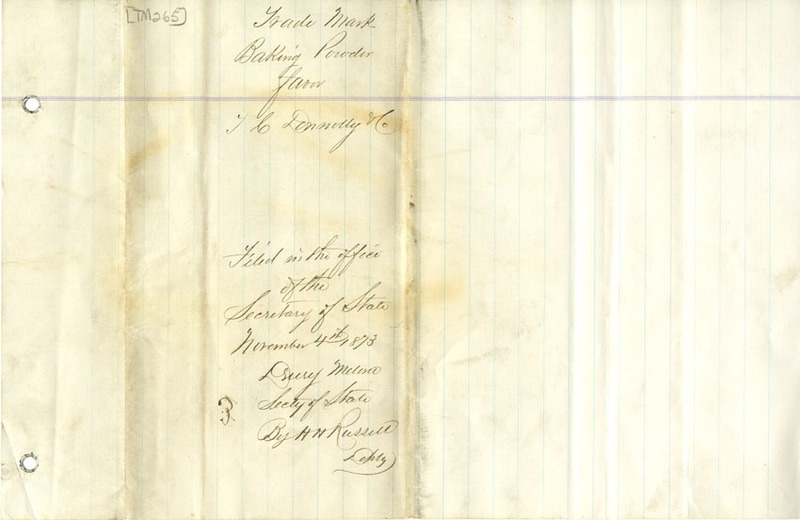 [TM265]
Trade Mark
Baking Powder
favor
T C Donnolly & Co
Filed in the office
of the
Secretary of State
November 4th 1873
Drury Melone
Secty of State
By H H Russell
Depty